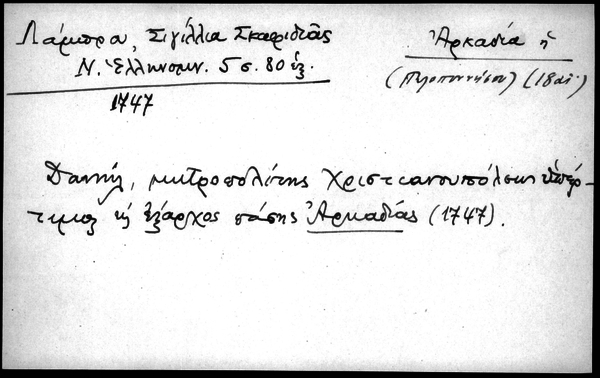 Λάμπρου, Σιγίλλια Σκαφιδιᾶς
Ν. Ἑλληνομν. 5 σ. 80 ἑξ.
1747
Ἀρκαδία ἡ
(Πελοποννήσου) (18 αἰ.)
Δανιήλ, μητροπολίτης Χριστιανουπόλεως ὑπέρ-
τιμος καὶ ἔξαρχος πάσης Ἀρκαδίας (1747).